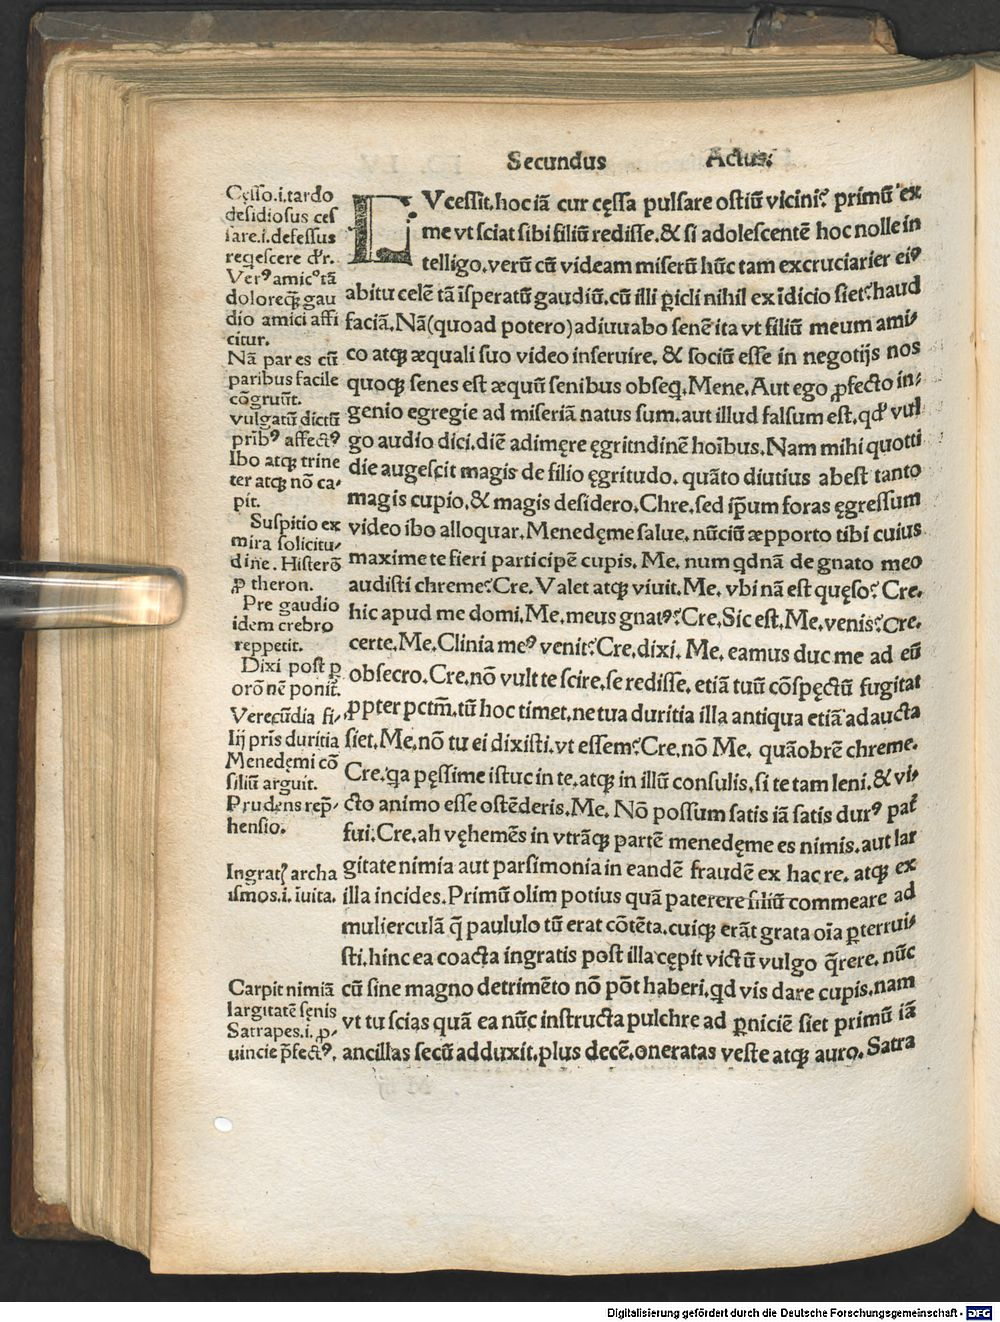 Secundus Actus.
Cęsso.i.tardo
desidiosus ces
sare.i.defessus
reqescere dr̃.
Verꝰ amicꝰ tā
doloreqꝫ gau
dio amici affi
citur.
Nā par es cū
paribus facile
cōgruūt.
vulgatū dictū
prib̄ꝰ affectꝰ
Ibo atqꝫ trine
ter atqꝫ nō ca-
pit.
Suspitio ex
mira solicitu-
dine. Histerō
ꝓ theron.
Pre gaudio
idem crebro
reppetit.
Dixi post ꝑ
orōnē ponit̃.
Verecūdia fi-
lij pris̄ duritia
Menedęmi cō
siliū arguit.
Prudens rep̄-
hensio.
Ingratꝭ archa
ismos.i.īuita.
Carpit nimiā
largitatē sęnis
Satrapes.i.ꝓ-
uincie p̄fectꝰ.
LVcessit.hoc iā cur cęssa pulsare ostiū vicini? primū ex
me vt sciat sibi filiū redisse.& si adolescentē hoc nolle in
telligo.verū cū videam miserū hūc tam excruciarier eiꝰ
abitu celē tā īsperatū gaudiū.cū illi ꝑicli nihil ex īdicio siet?haud
faciā.Nā(quoad potero)adiuuabo senē ita vt filiū meum ami-
co atqꝫ æquali suo video inseruire.& sociū esse in negotijs nos
quoqꝫ senes est æquū senibus obseq.Mene.Aut ego ꝓfecto in-
genio egregie ad miseriā natus sum.aut illud falsum est.qd̛ vul
go audio dici.diē adimęre ęgritndinē hoībus.Nam mihi quotti
die augesçit magis de filio ęgritudo.quāto diutius abest tanto
magis cupio.& magis desidero.Chre.sed ip̄um foras ęgressum
video ibo alloquar.Menedęme salue.nūciū æpporto tibi cuius
maxime te fieri participē cupis.Me.num qdnā de gnato meo
audisti chreme?Cre.Valet atqꝫ viuit.Me.vbi nā est quęso?Cre.
hic apud me domi.Me.meus gnatꝰ?Cre.Sic est.Me.venis?Cre.
certe.Me.Clinia meꝰ venit?Cre.dixi.Me.eamus duc me ad eū
obsecro.Cre.nō vult te scire.se redisse.etiā tuū cōspęctū fugitat
ꝓpter pctm̄.tū hoc timet.ne tua duritia illa antiqua etiā adaucta
siet.Me.nō tu ei dixisti.vt essem?Cre.nō Me.quāobrē chreme.
Cre.qa pęssime istuc in te.atqꝫ in illū consulis.si te tam leni.& vi-
cto animo esse ostēderis.Me.Nō possum satis iā satis durꝰ pat̃
fui.Cre.ah vęhemēs in vtrāqꝫ partē menedęme es nimis.aut lar
gitate nimia aut parsimonia in eandē fraudē ex hac re.atqꝫ ex
illa incides.Primū olim potius quā paterere filiū commeare ad
mulierculā q̄ paululo tū erat cōtēta.cuiqꝫ erāt grata oīa ꝑterrui-
sti.hinc ea coacta ingratis post illa cępit victū vulgo q̄rere.nūc
cū sine magno detrimēto nō pōt haberi.qd vis dare cupis.nam
vt tu scias quā ea nūc instructa pulchre ad ꝑniciē siet primū iā
ancillas secū adduxit.plus decē.oneratas veste atqꝫ auro.Satra
Digitalisierung gefördert durch die Deutsche Forschungsgemeinschaft - DFG